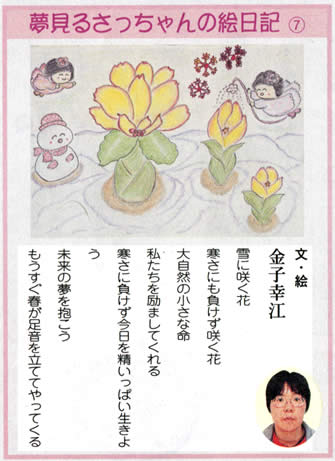 夢見るさっちゃんの絵日記 ⑦
文・絵
金子幸江
雪に咲く花
寒さにも負けず咲く花
大自然の小さな命
私たちを励ましてくれる
寒さに負けず今日を精いっぱい生きよ
う
未来の夢を抱こう
もうすぐ春が足音を立ててやってくる